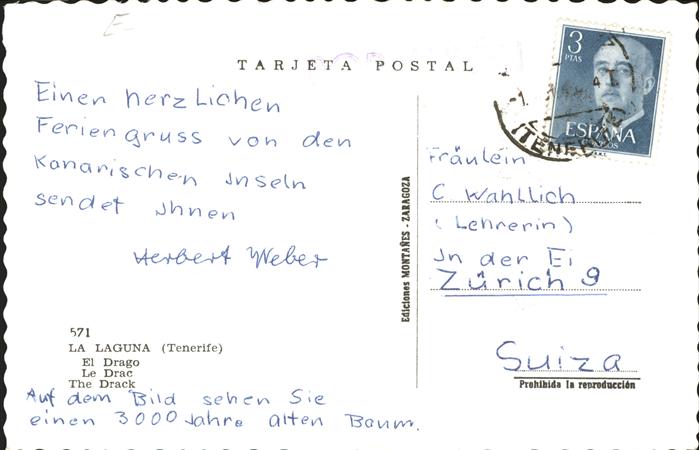 E
TARJETA POSTAL
Einen herzlichen
Feriengruss von den
Kanarischen Inseln
sendet Ihnen
Herbert Weber
3
PTAS
ESPAÑA
Fräulein
C Wahllich
(Lehrerin)
In der Ei
Zürich 9
Suiza
Prohibida la reproducción
Ediciones MONTAÑES - ZARAGOZA
571
LA LAGUNA (Tenerife)
El Drago
Le Drac
The Drack
Auf dem Bild sehen Sie
einen 3000 Jahre alten Baum.